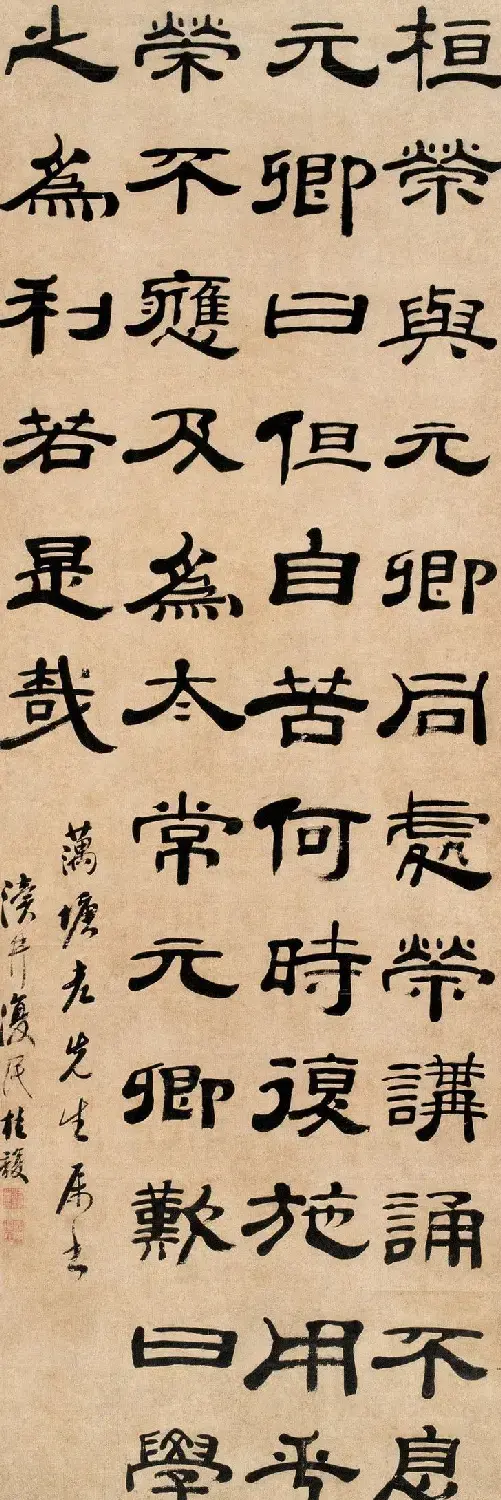 桓榮與元卿同處榮講誦不息
元卿曰但自苦何時復施用乎
榮不應及為太常元卿歎曰學
之為利若是哉
藕塘老先生屬書
瀆井復民桂馥